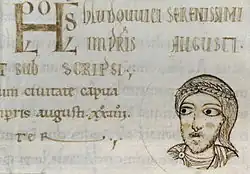 hludouuici serenissimi
impr̄is augusti.
t sub scripsi;
um ciuitate capua
mpris augusti. xxiiii.
ter